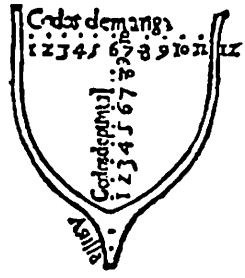 Codos de manga
1 2 3 4 5 6 7 8 9 10 11 12
Codos de puntal
1 2 3 4 5 6 7 8 9